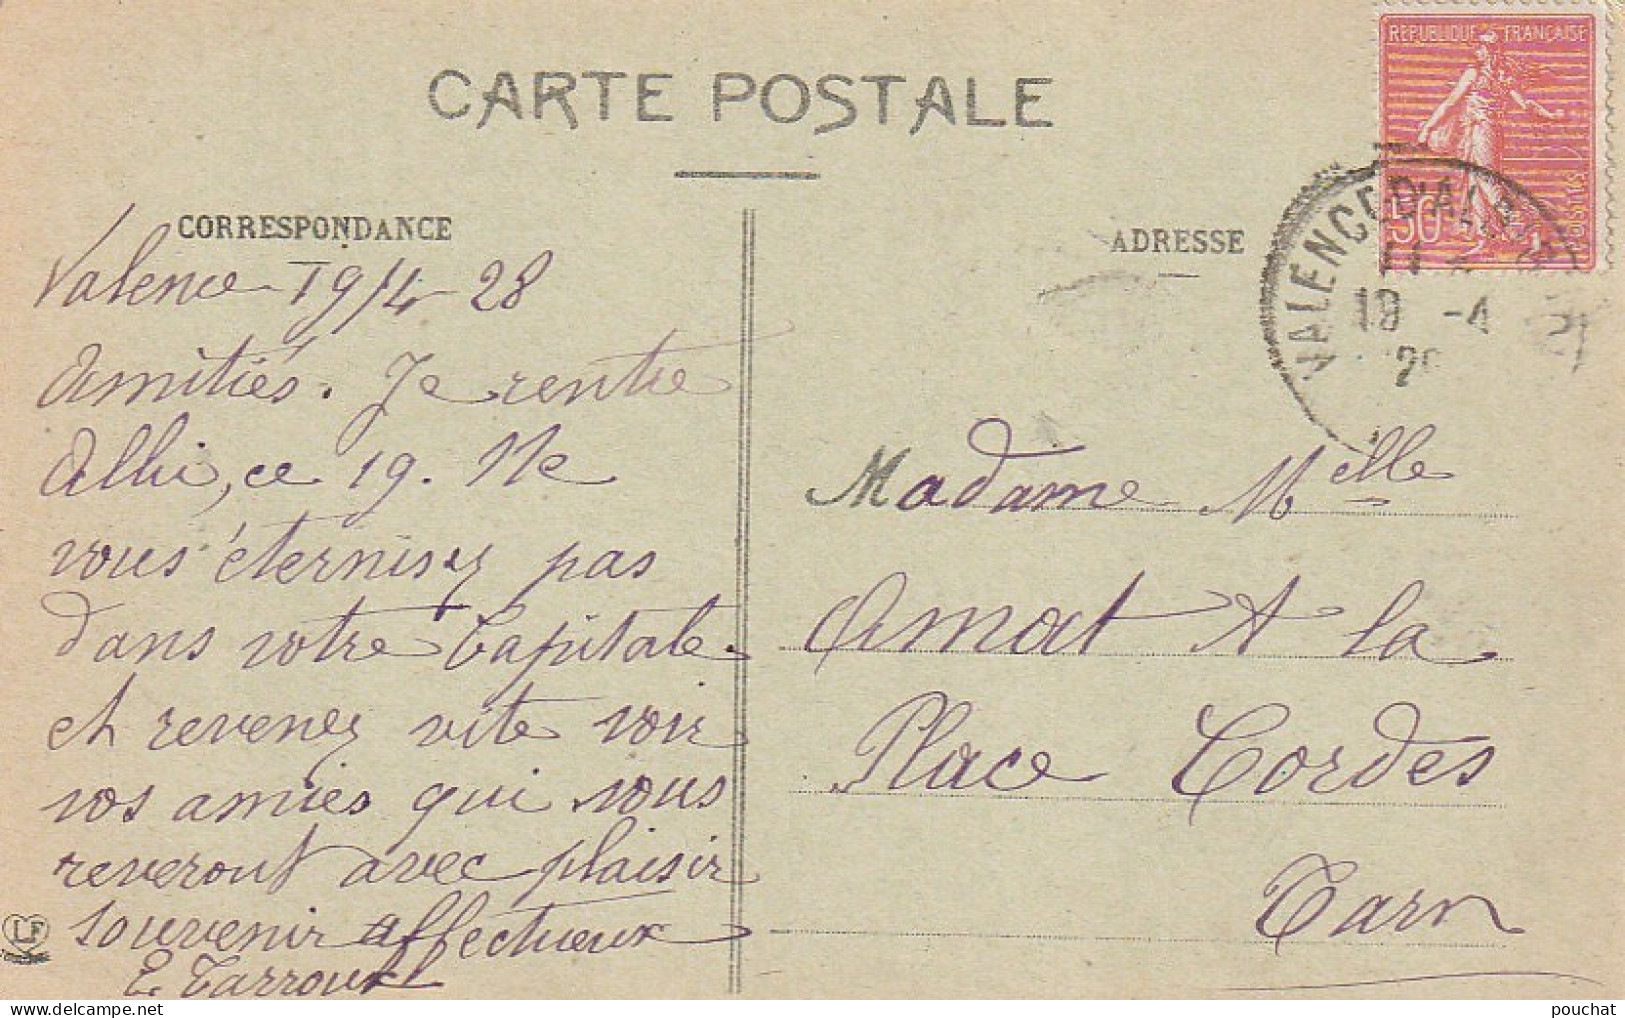 CARTE POSTALE
REPUBLIQUE FRANÇAISE
50
POSTES
VALENCE D'ALB
11
19 -4
CORRESPONDANCE
ADRESSE
Valence 19/4 28
Amitiés. Je rentre
Albi, ce 19. Ne
vous éternisez pas
dans votre Capitale
et revenez vite voir
vos amies qui vous
reveront avec plaisir
souvenir affectueux
E. Tarroux
LF
Madame Melle
Amat A la
Place Cordes
Tarn
pouchat